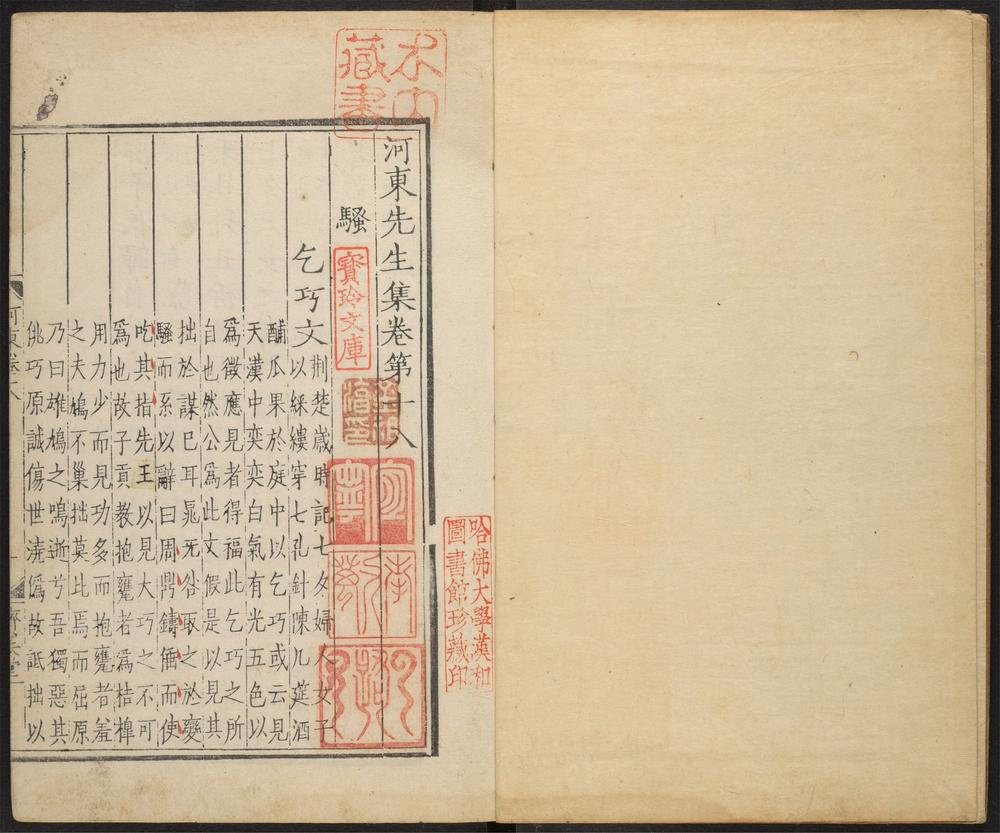 河東先生集卷第十八
騷
乞巧文
荆楚歲時記七夕婦人女子
以綵縷穿七孔針陳几筵酒
酺瓜果於庭中以乞巧或云見
天漢中奕奕白氣有光五色以
爲徵應見者得福此乞巧之所
自也然公爲此文假是以見其
拙於謀巳耳晁无咎取之於變
騷而系以辭曰周鼎鑄倕而使
吃其指先王以見大巧之不可
爲也故子貢教抱甕者爲桔橰
用力少而見功多而抱甕者羞
之夫鳩不巢拙莫此焉而屈原
乃曰雄鳩之鳴逝兮吾獨惡其
佻巧原誠傷世澆僞故詆拙以
河東卷十八
藏書
寶玲文庫
哈佛大學漢和
圖書館珍藏印